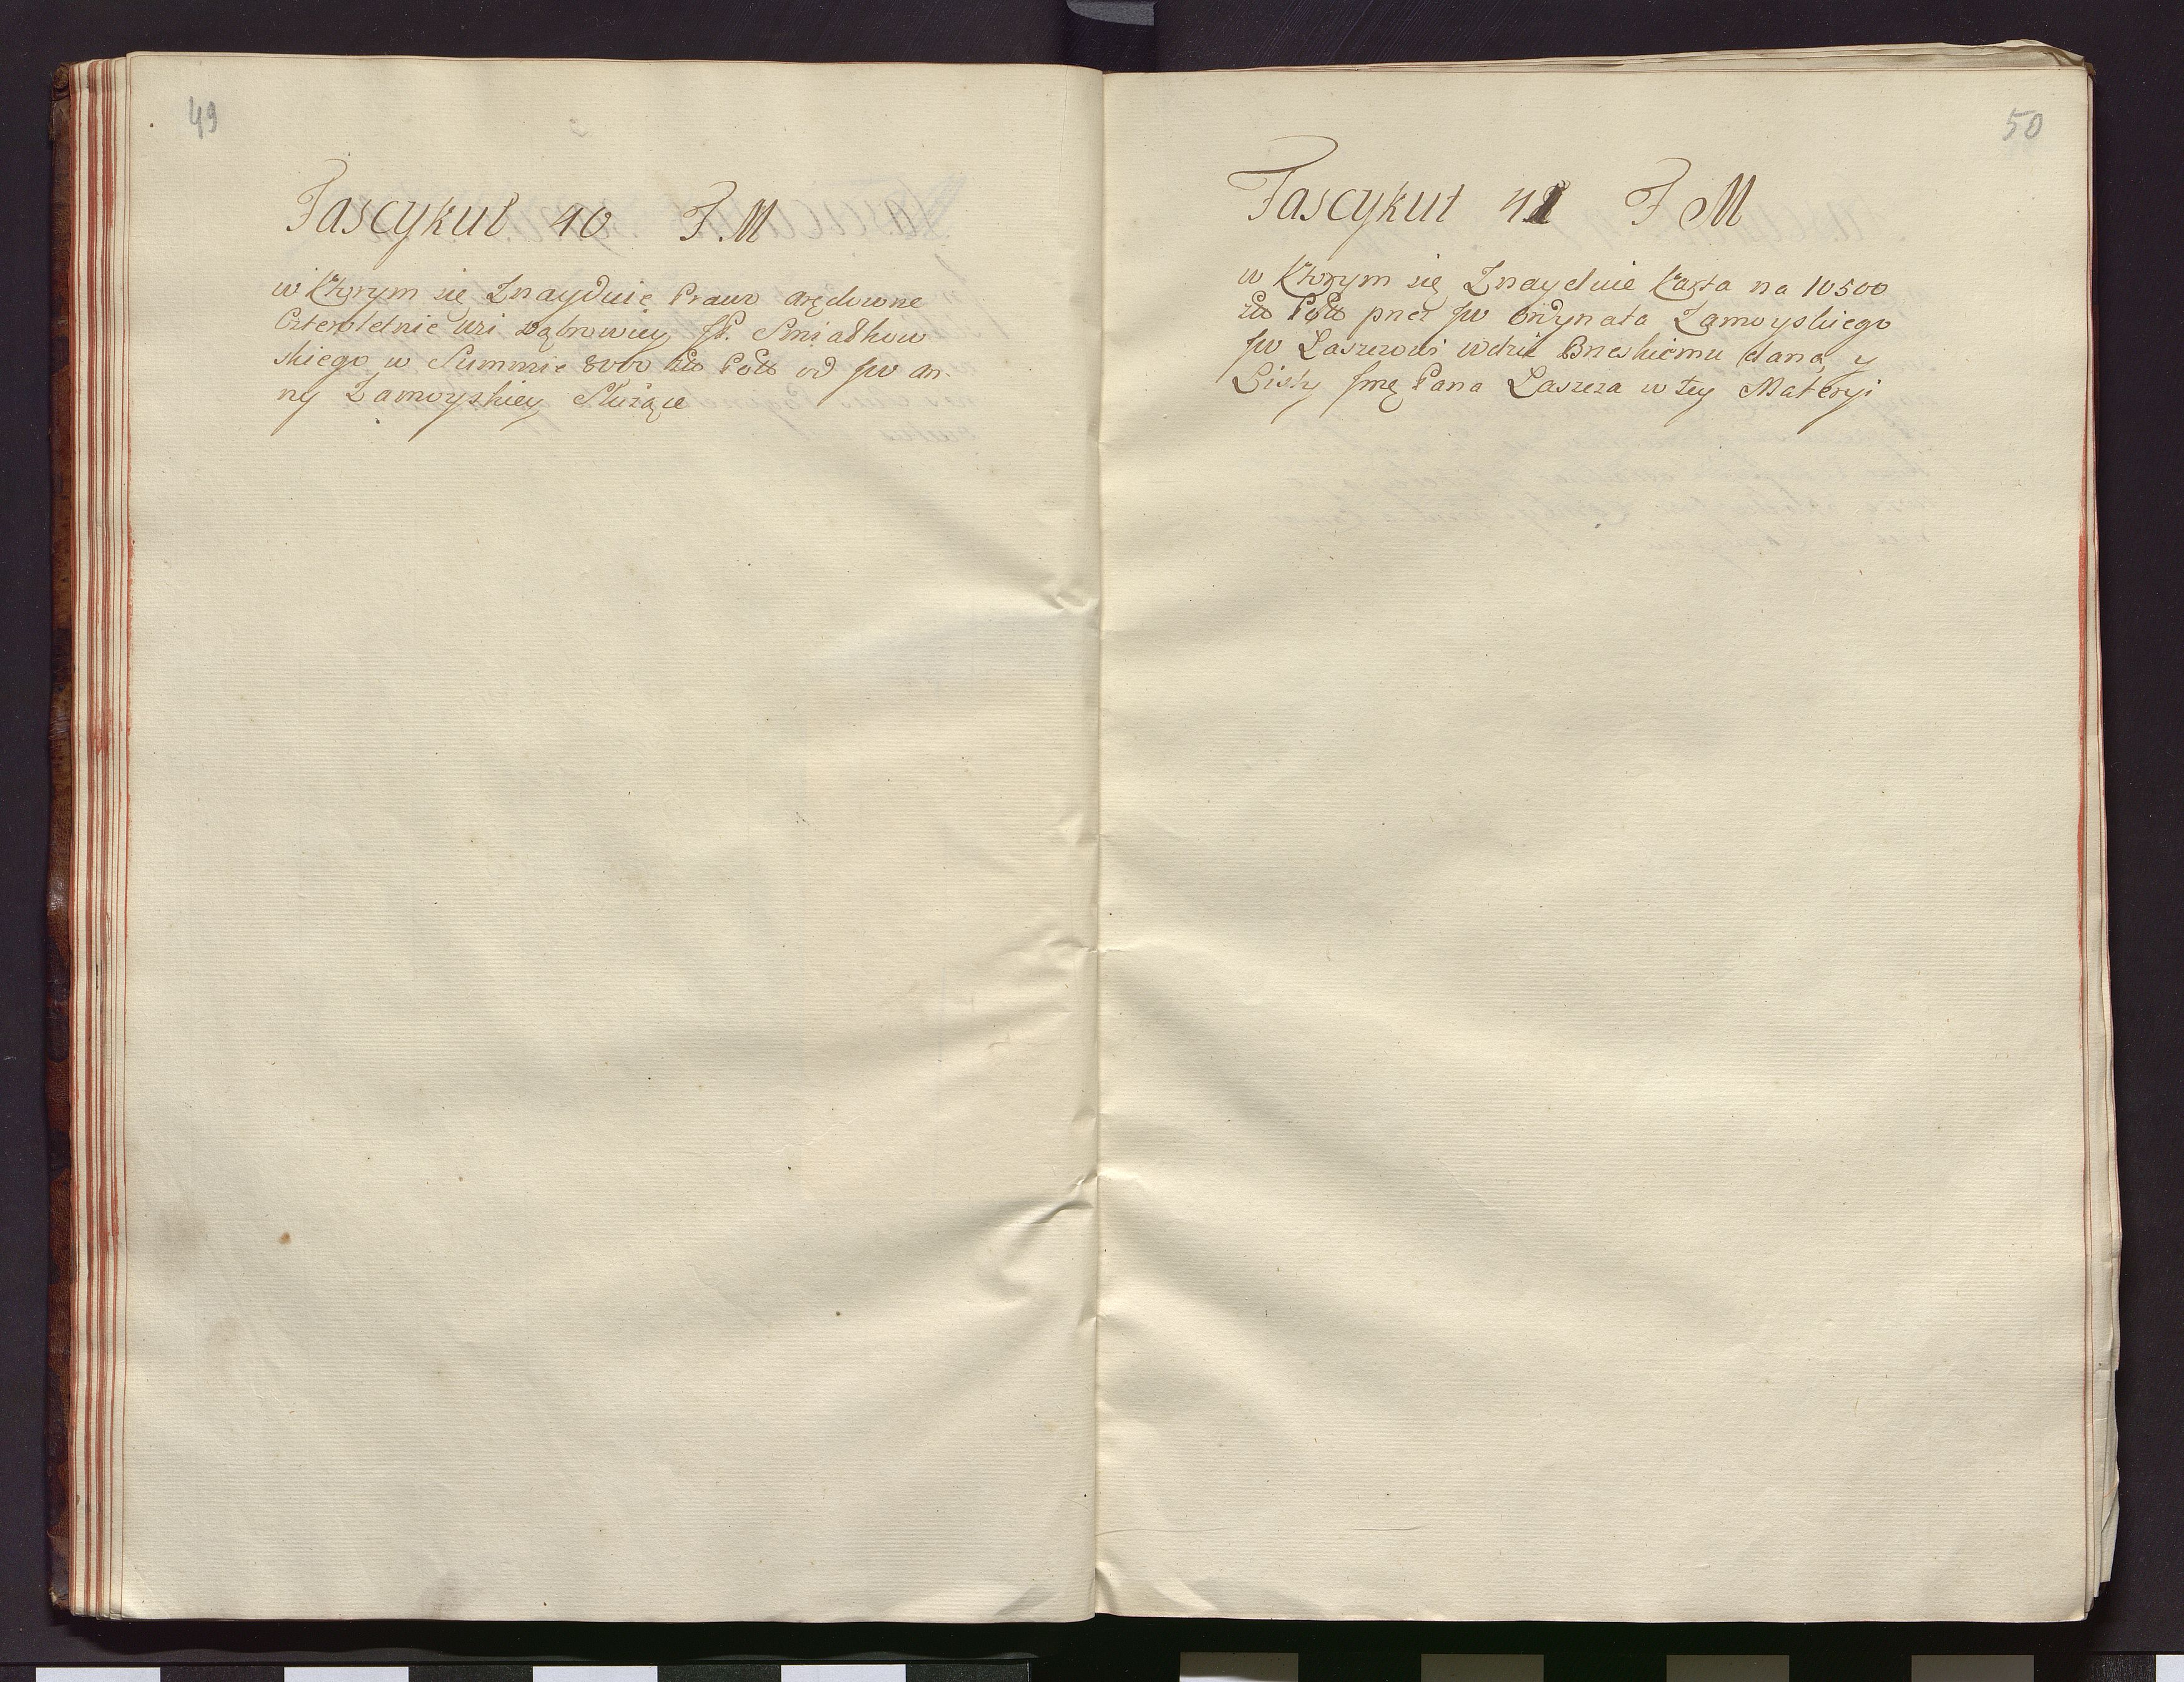 49
Fascykuł 40 F. M
w Ktorym się Znayduie Prawo arędowne
Czteroletnie wsi Dąbrowicy JP. Smiadkow
skiego w Summie 8000 zło Poll od JW an
ny Zamoyskiey Służące
50
Fascykuł 41 F M
w Ktorym się Znayduie Karta na 10500
zło Poll przez JW Ordynata Zamoyskiego
JW Laszczowi wdzie Brzeskiemu dana, y
Listy Jmę Pana Laszcza w tey Materyi